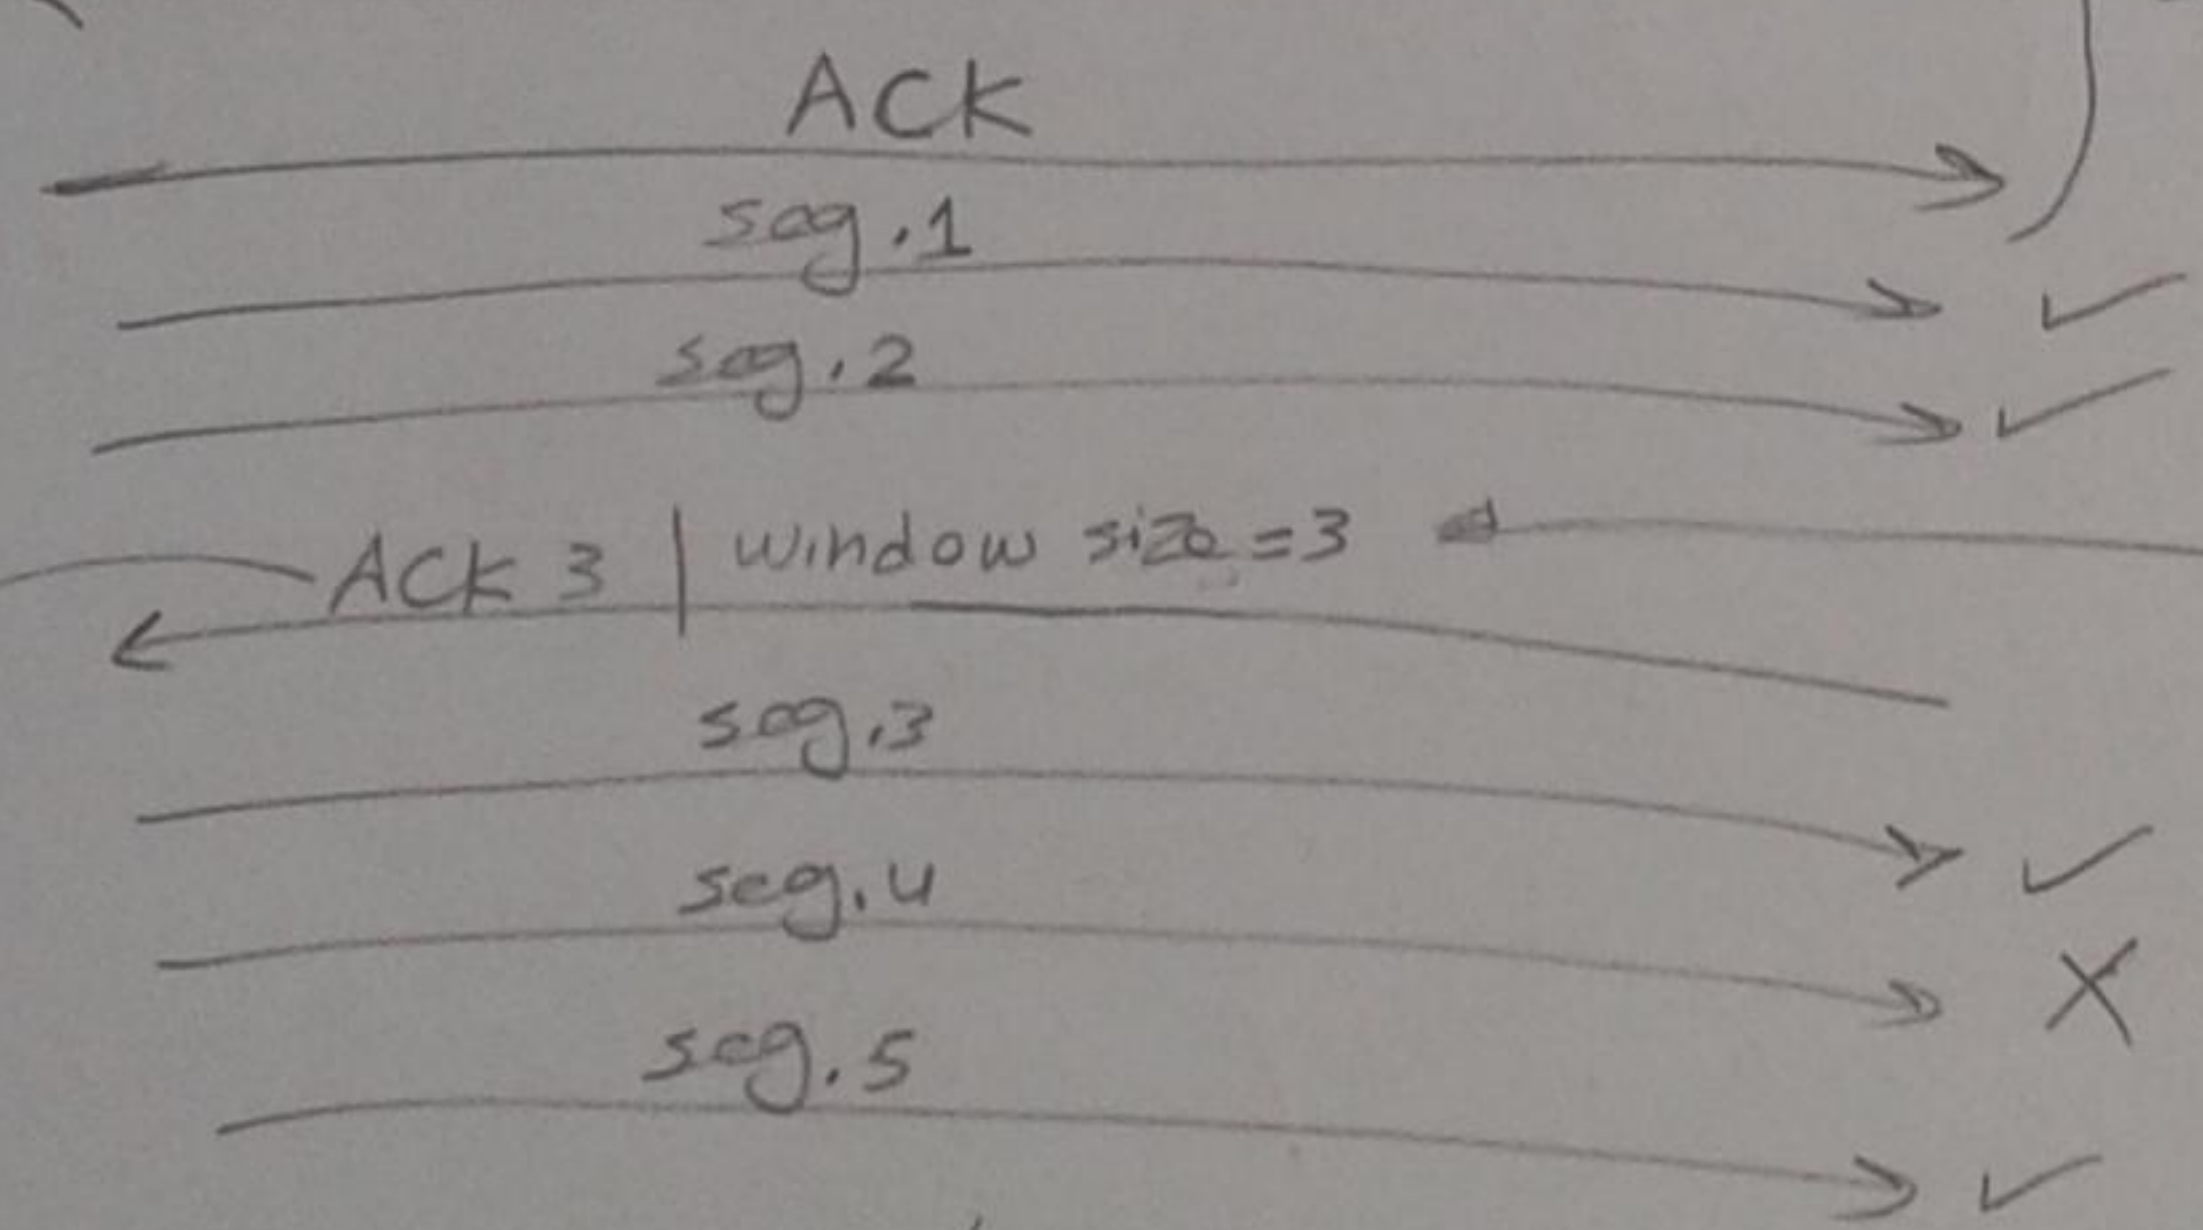 ACK
seg.1
seg.2
ACK 3 | window size=3
seg.3
seg.4
seg.5